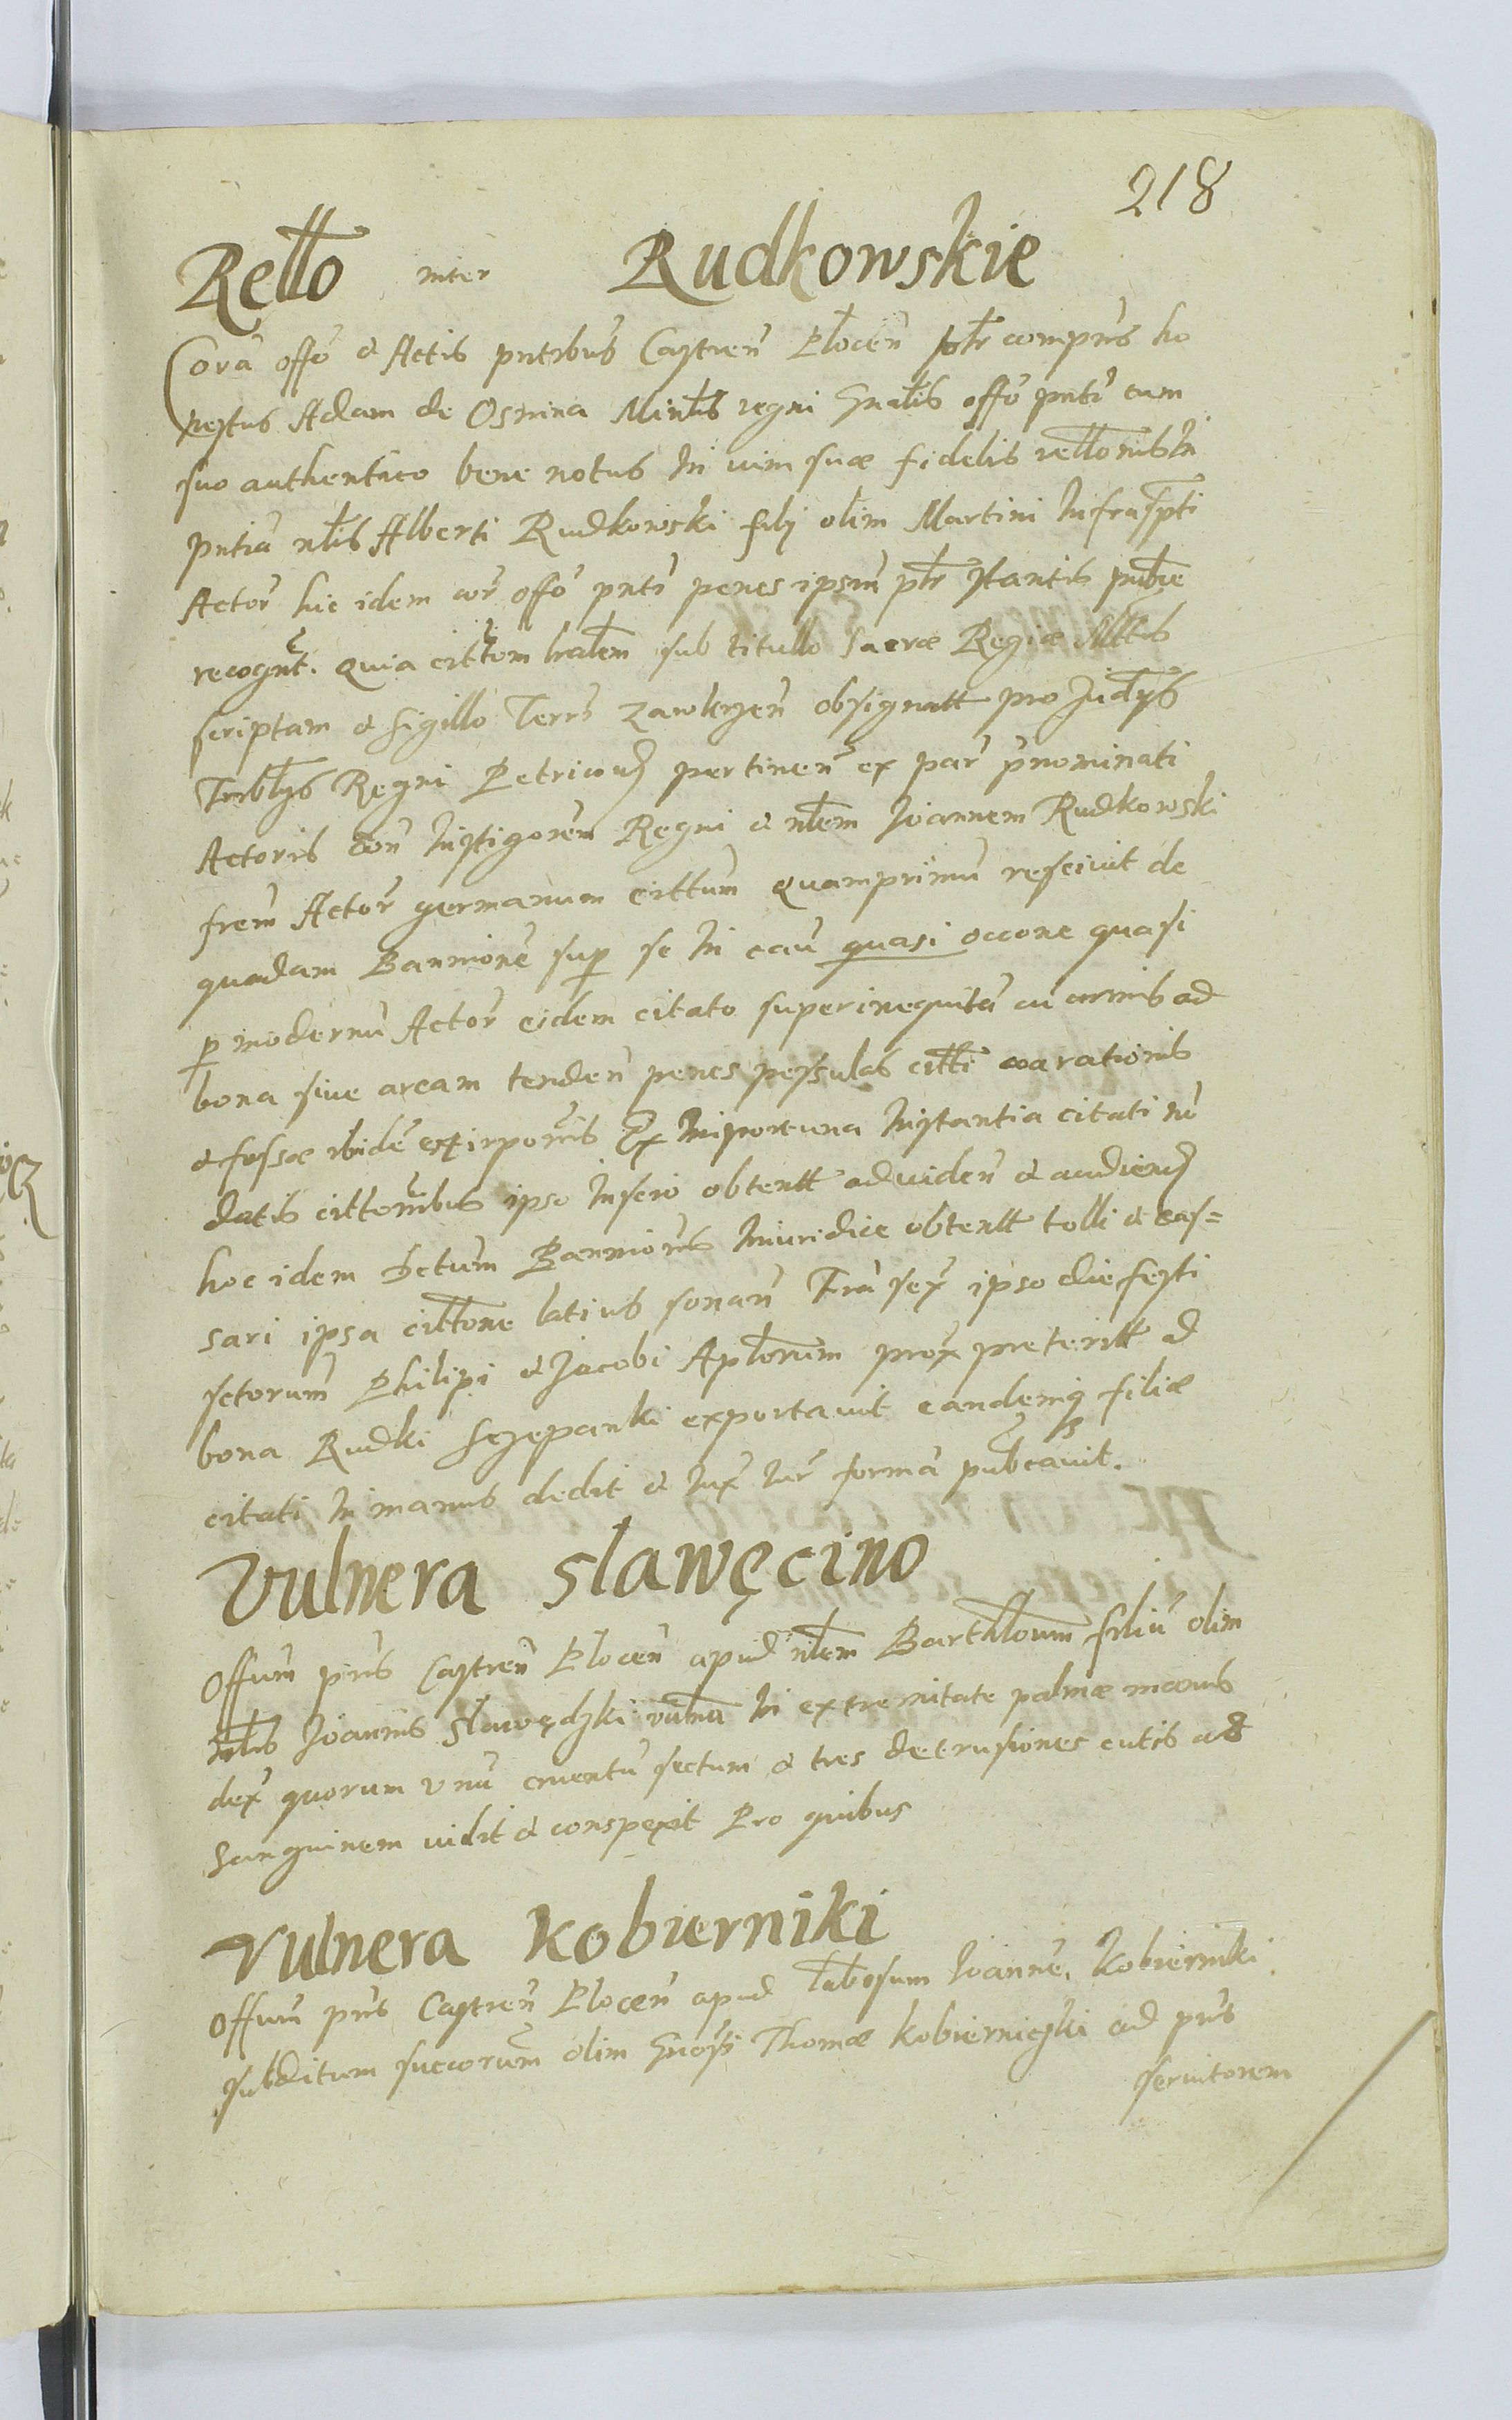 218
Rello inter Rudkowskie
Corā offō & Actis pntibus Castren Plocen pltr compns ho
nestus Adam de Osnica Minlis regni Gnalis offō pnti cum
suo authentico bene notus In vim suæ fidelis rellonis In
pntia nlis Alberti Rudkowski filij olim Martini Infrascpti
Actor hic idem cor offō pnti penes ipsum pltr stantis publce
recognt. Quia cittom lralem sub titullo Sacræ Regiæ Mttis
scriptam & sigillo Terrs Zawkrzen obsignatt pro Judcijs
Trblijs Regni Petricou pertinen ex par pnominati
Actoris con Instigorem Regni & nlem Joannem Rudkowski
frem Actor germanum cittum Quamprimu rescivit de
quadam Bannione sup se In cau quasi occone quasi
p modernu Actor eidem citato superinequita cu armis ad
bona sive aream tenden penes pessulas citti oarationis
& fossæ ibide extirponis Ex Importuna Instantia citati nō
datis cittonibus ipso Inscio obtentt ad viden & audien
hoc idem Dctum Bannionis Iniuridice obtentt tolli & cas=
sari ipsa cittone latius sonan Fria sex ipso die festi
sctorum Philipi & Jacobi Aplorum prox preteritt d
bona Rudki Sczepanki exportavit eandemq filiæ
citati In manus dedit & Iux Iur formā pubcavit.
Vulnera Slawęcino
Offum pns Castren Plocen apud nlem Barthlouum filiū olim
nlis Joannis Slawędzki vulna In extremitate palmæ manus
dex quorum unū cruentū sectum & tres detrusiones cutis ad
Sanguinem vidit & conspexit Pro quibus
Vulnera Kobierniki
Offum pns Castren Plocen apud labosum Joanne Kobiernicki
subditum succorum olim Gnosi Thomæ Kobierniczki ad pns
servitorem